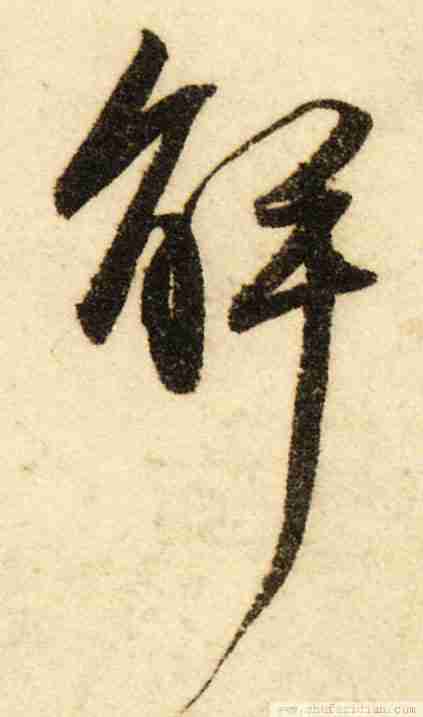 解
www.shufazidian.com